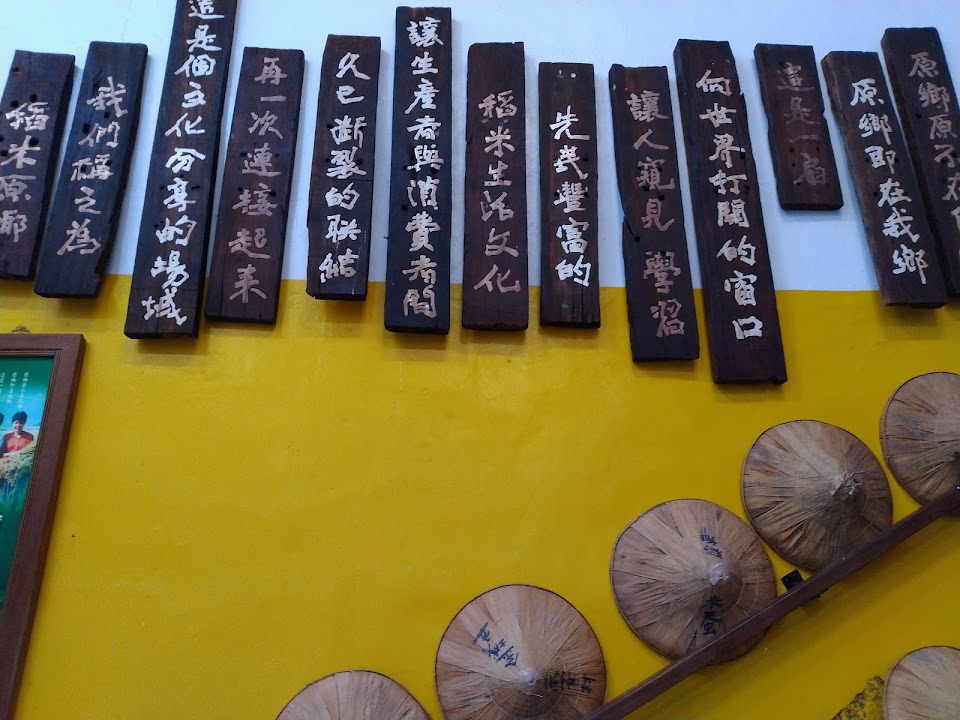 原鄉原不在
原鄉即在我鄉
這是一扇
向世界打開的窗口
讓人窺見 學習
先民豐富的
稻米生活文化
讓生產者與消費者間
久已斷裂的联結
再一次連接起来
這是個文化分享的場域
我們稱之為
稻米原鄉